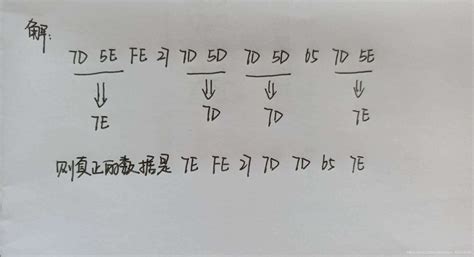 解:
7D 5E FE 27 7D 5D 7D 5D 65 7D 5E
⇓ ⇓ ⇓ ⇓
7E 7D 7D 7E
则真正的数据是 7E FE 27 7D 7D 65 7E